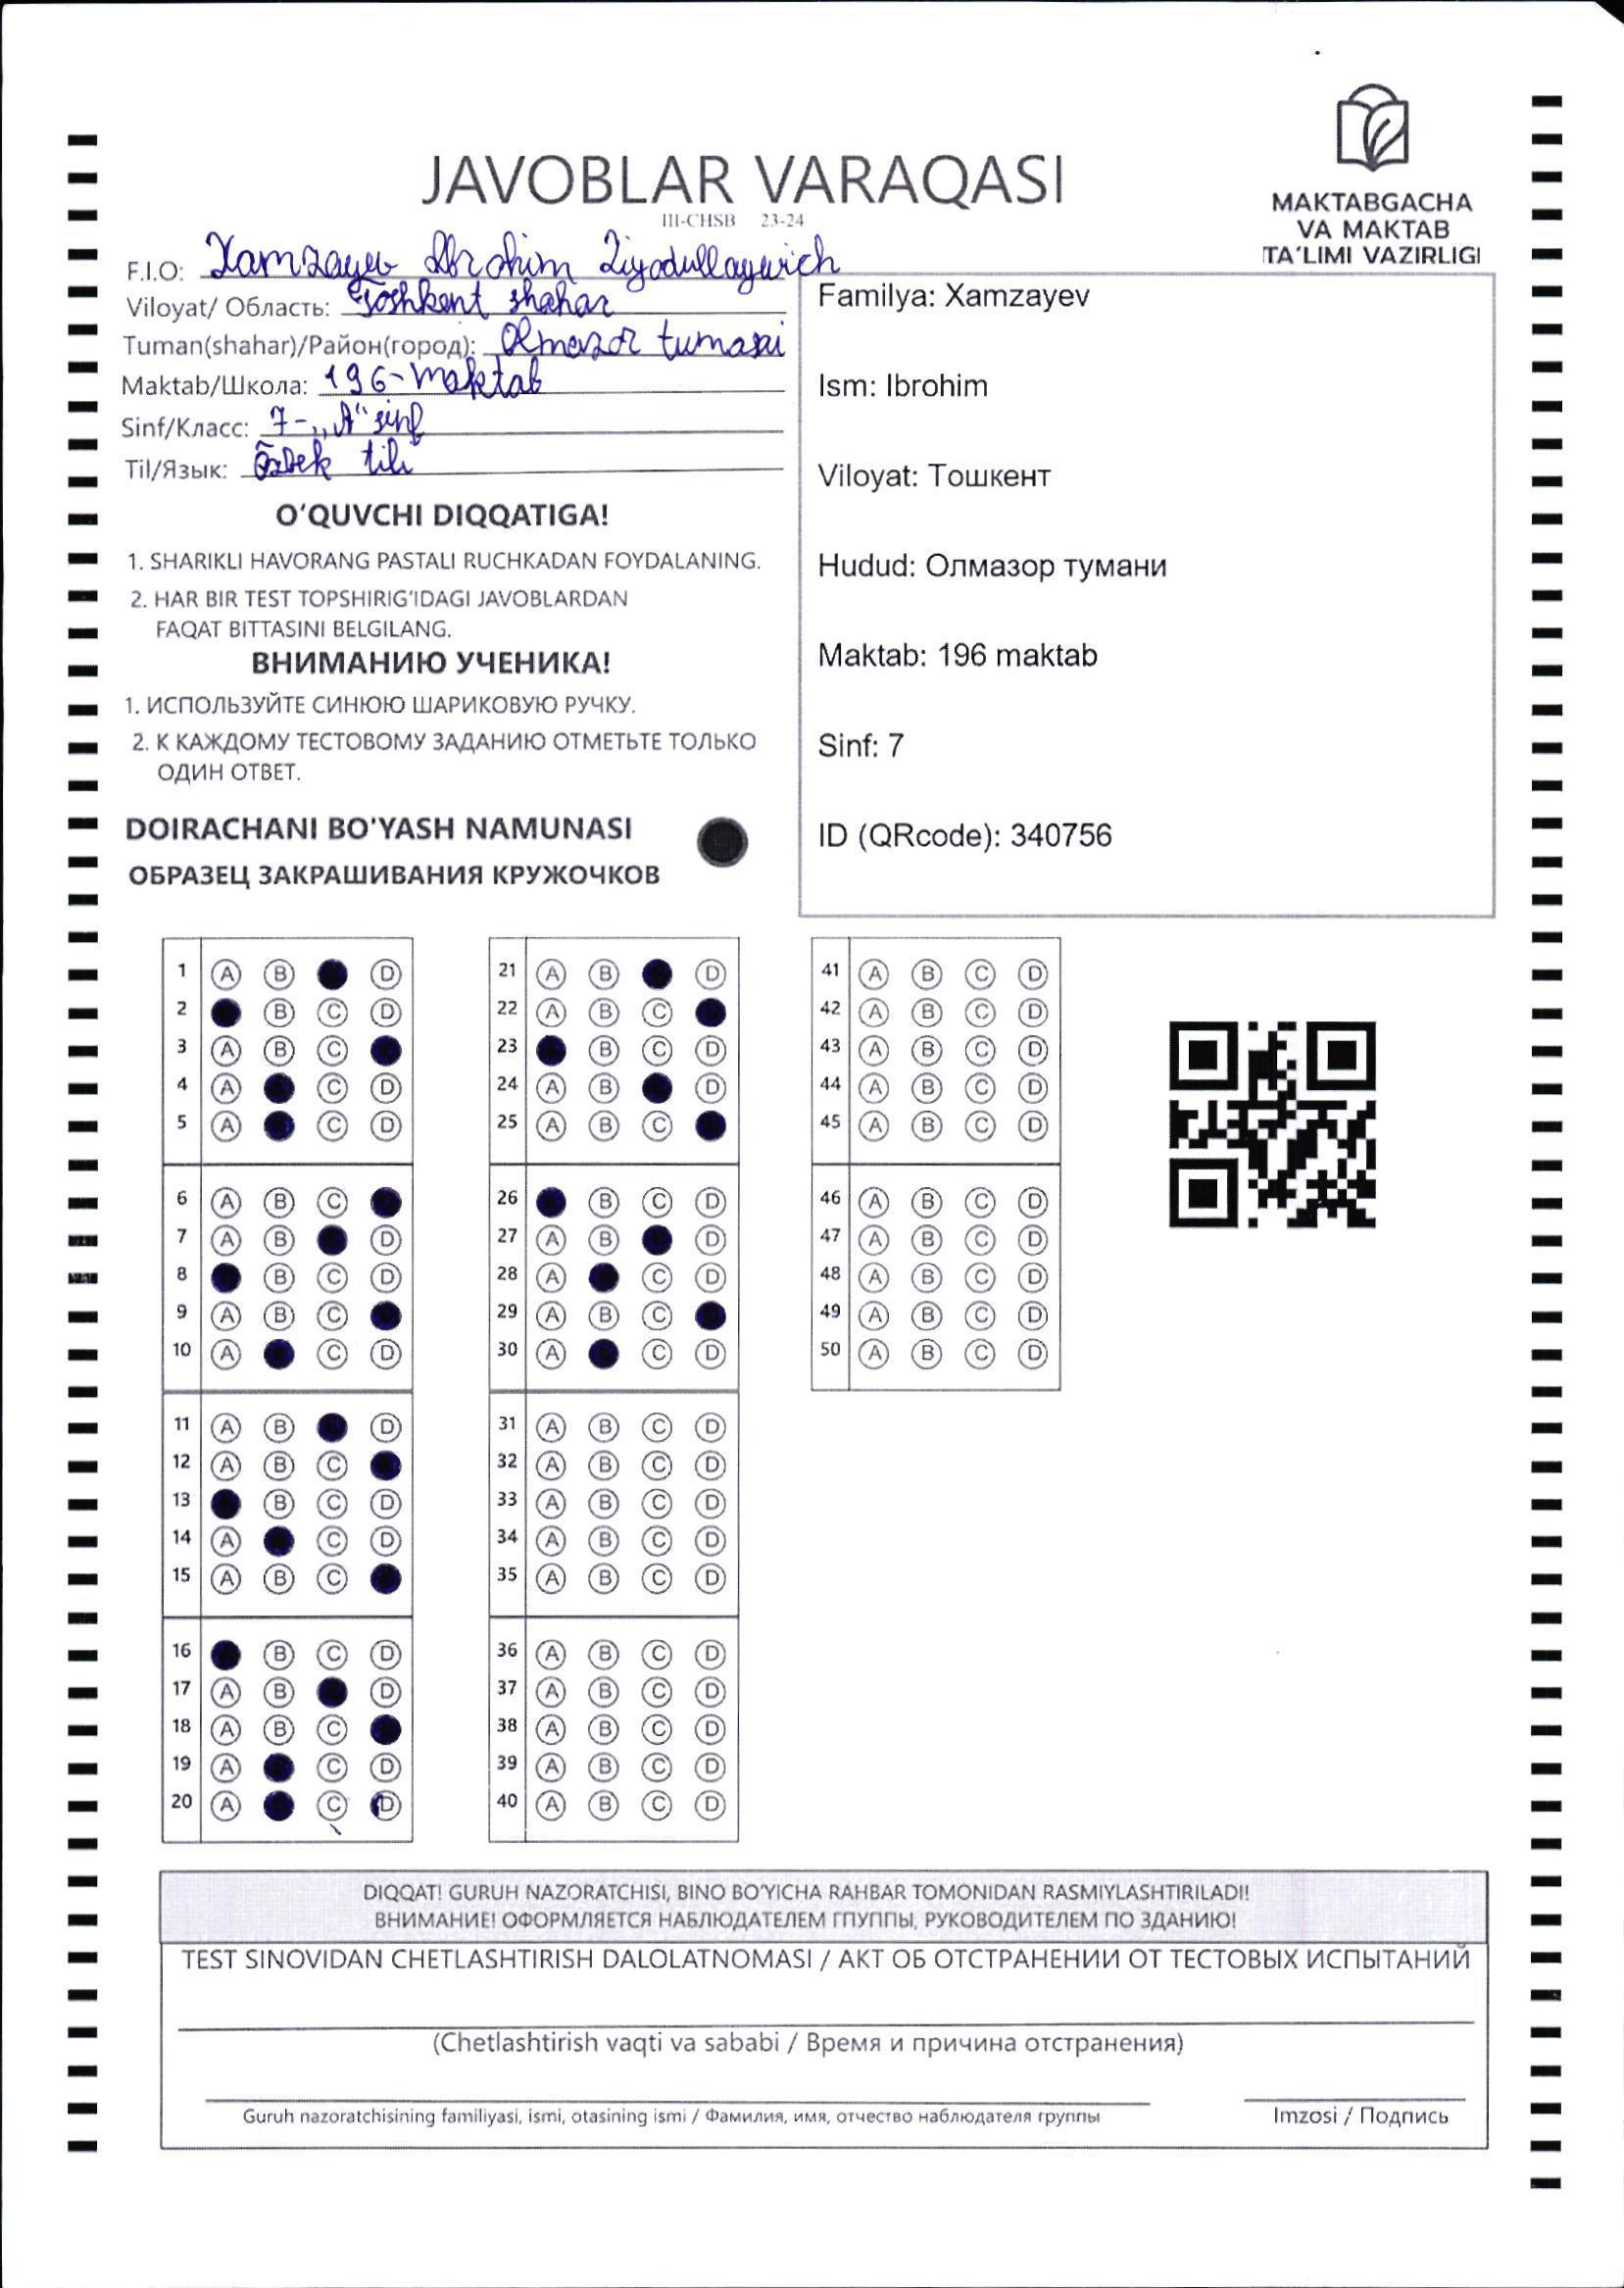 JAVOBLAR VARAQASI
III-CHSB 23-24
MAKTABGACHA
VA MAKTAB
TA'LIMI VAZIRLIGI
F.I.O: Xamzayev Ibrohim Ziyodullayevich
Viloyat/ Область: Toshkent shahar
Tuman(shahar)/Район(город): Olmazor tumani
Maktab/Школа: 196-maktab
Sinf/Класс: 7-„A" sinf
Til/Язык: Õzbek tili
O'QUVCHI DIQQATIGA!
1. SHARIKLI HAVORANG PASTALI RUCHKADAN FOYDALANING.
2. HAR BIR TEST TOPSHIRIG'IDAGI JAVOBLARDAN
FAQAT BITTASINI BELGILANG.
ВНИМАНИЮ УЧЕНИКА!
1. ИСПОЛЬЗУЙТЕ СИНЮЮ ШАРИКОВУЮ РУЧКУ.
2. К КАЖДОМУ ТЕСТОВОМУ ЗАДАНИЮ ОТМЕТЬТЕ ТОЛЬКО
ОДИН ОТВЕТ.
DOIRACHANI BO'YASH NAMUNASI
ОБРАЗЕЦ ЗАКРАШИВАНИЯ КРУЖОЧКОВ
Familya: Xamzayev
Ism: Ibrohim
Viloyat: Тошкент
Hudud: Олмазор тумани
Maktab: 196 maktab
Sinf: 7
ID (QRcode): 340756
1 A B D
2 B C D
3 A B C
4 A C D
5 A C D
6 A B C
7 A B D
8 B C D
9 A B C
10 A C D
11 A B D
12 A B C
13 B C D
14 A C D
15 A B C
16 B C D
17 A B D
18 A B C
19 A C D
20 A C D
21 A B D
22 A B C
23 B C D
24 A B D
25 A B C
26 B C D
27 A B D
28 A C D
29 A B C
30 A C D
31 A B C D
32 A B C D
33 A B C D
34 A B C D
35 A B C D
36 A B C D
37 A B C D
38 A B C D
39 A B C D
40 A B C D
41 A B C D
42 A B C D
43 A B C D
44 A B C D
45 A B C D
46 A B C D
47 A B C D
48 A B C D
49 A B C D
50 A B C D
DIQQAT! GURUH NAZORATCHISI, BINO BO'YICHA RAHBAR TOMONIDAN RASMIYLASHTIRILADI!
ВНИМАНИЕ! ОФОРМЛЯЕТСЯ НАБЛЮДАТЕЛЕМ ГПУППЫ, РУКОВОДИТЕЛЕМ ПО ЗДАНИЮ!
TEST SINOVIDAN CHETLASHTIRISH DALOLATNOMASI / АКТ ОБ ОТСТРАНЕНИИ ОТ ТЕСТОВЫХ ИСПЫТАНИЙ
(Chetlashtirish vaqti va sababi / Время и причина отстранения)
Guruh nazoratchisining familiyasi, ismi, otasining ismi / Фамилия, имя, отчество наблюдателя группы
Imzosi / Подпись